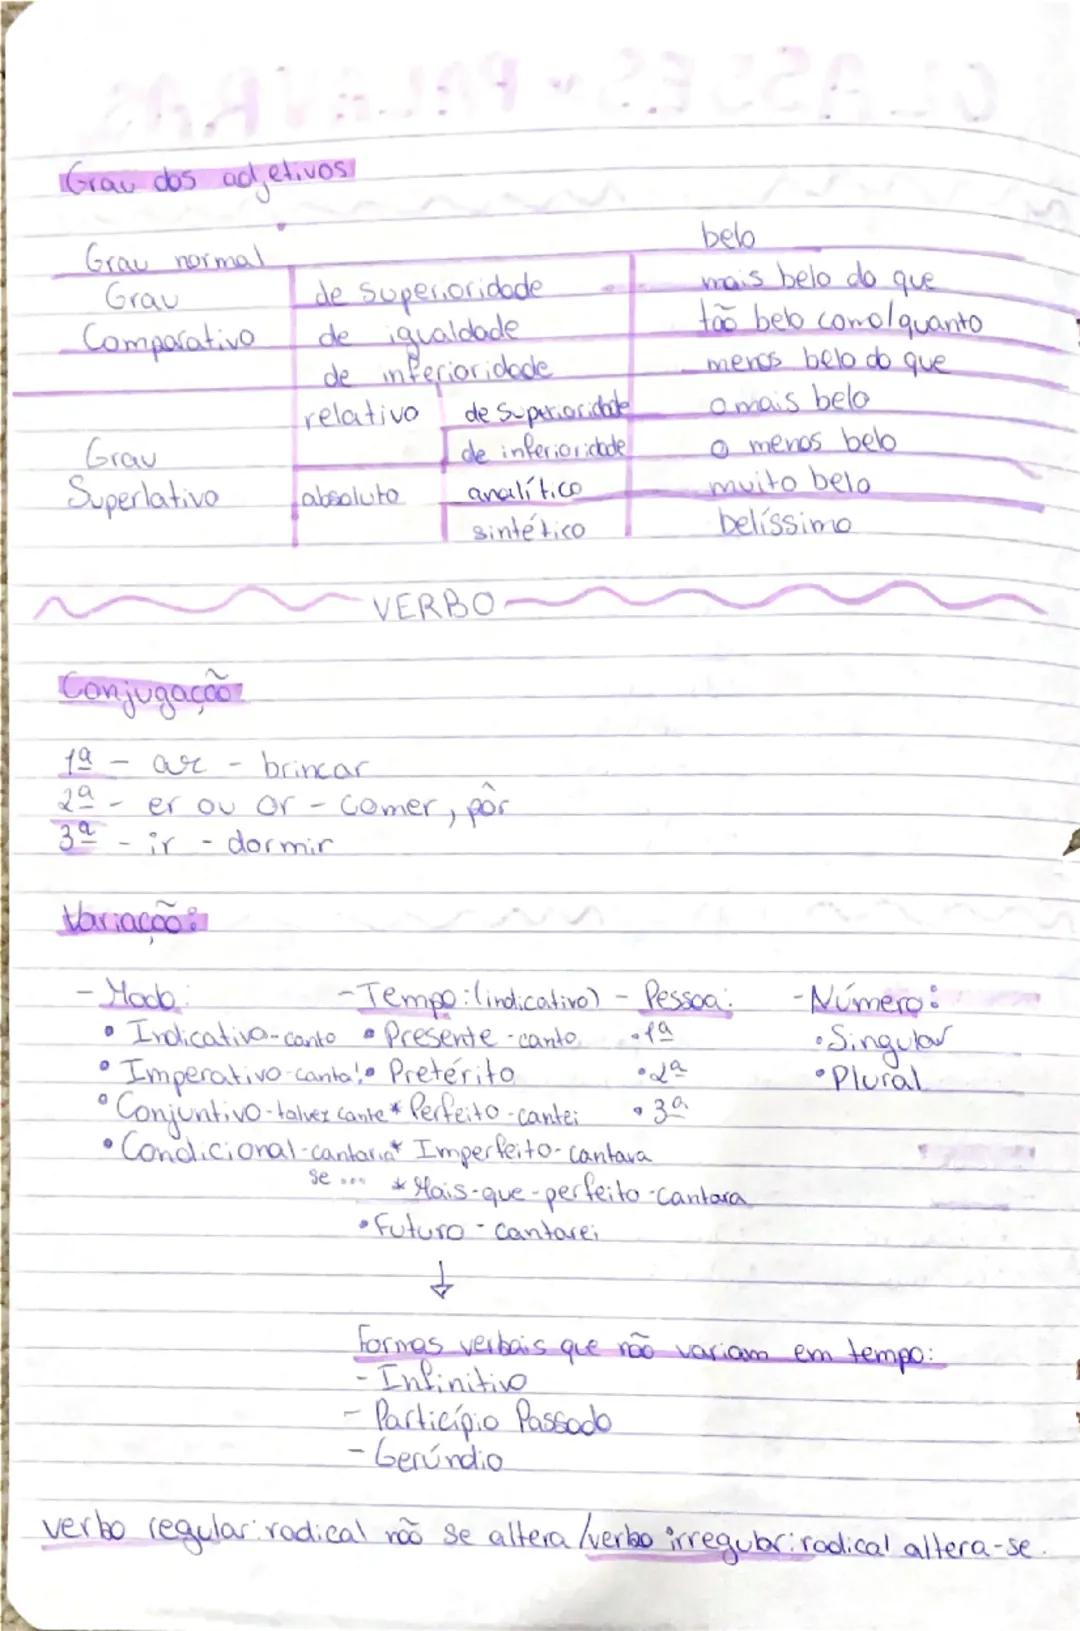 Grau dos adjetivos
Grau normal belo
Grau de superioridade mais belo do que
Comparativo de igualdade tão belo como/quanto
de inferioridade menos belo do que
relativo de superioridade o mais belo
Grau de inferioridade o menos belo
Superlativo absoluto analítico muito belo
sintético belíssimo
VERBO
Conjugação
1ª - ar - brincar
2ª - er ou or - comer, pôr
3ª - ir - dormir
Variação:
- Modo: - Tempo: (indicativo) - Pessoa: - Número:
• Indicativo - canto • Presente - canto •1ª •Singular
• Imperativo - canta! • Pretérito •2ª •Plural
• Conjuntivo - talvez cante * Perfeito - cantei •3ª
• Condicional - cantaria * Imperfeito - cantava
se ... * Mais-que-perfeito - cantara
• Futuro - cantarei
↓
Formas verbais que não variam em tempo:
- Infinitivo
- Particípio Passado
- Gerúndio
verbo regular: radical não se altera / verbo irregular: radical altera-se.